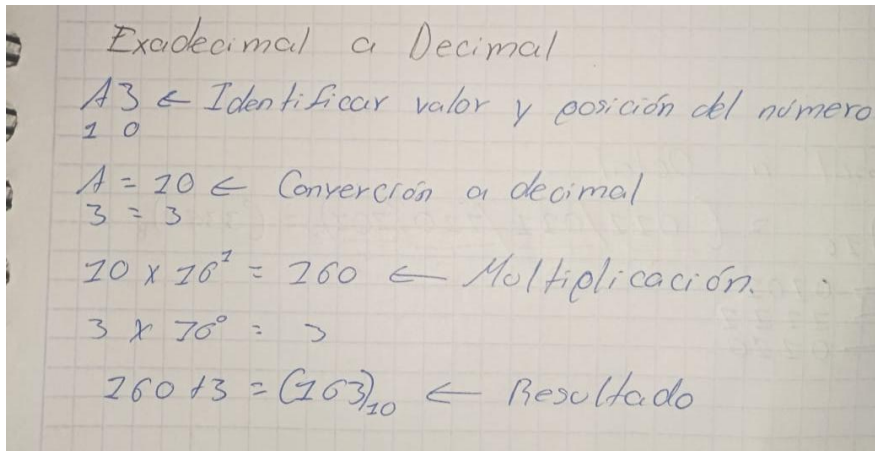 Exadecimal a Decimal
A3 ← Identificar valor y posición del número
1 0
A = 10 ← Converción a decimal
3 = 3
10 x 16¹ = 160 ← Moltiplicación.
3 x 16⁰ = 3
160 + 3 = (163)₁₀ ← Resultado